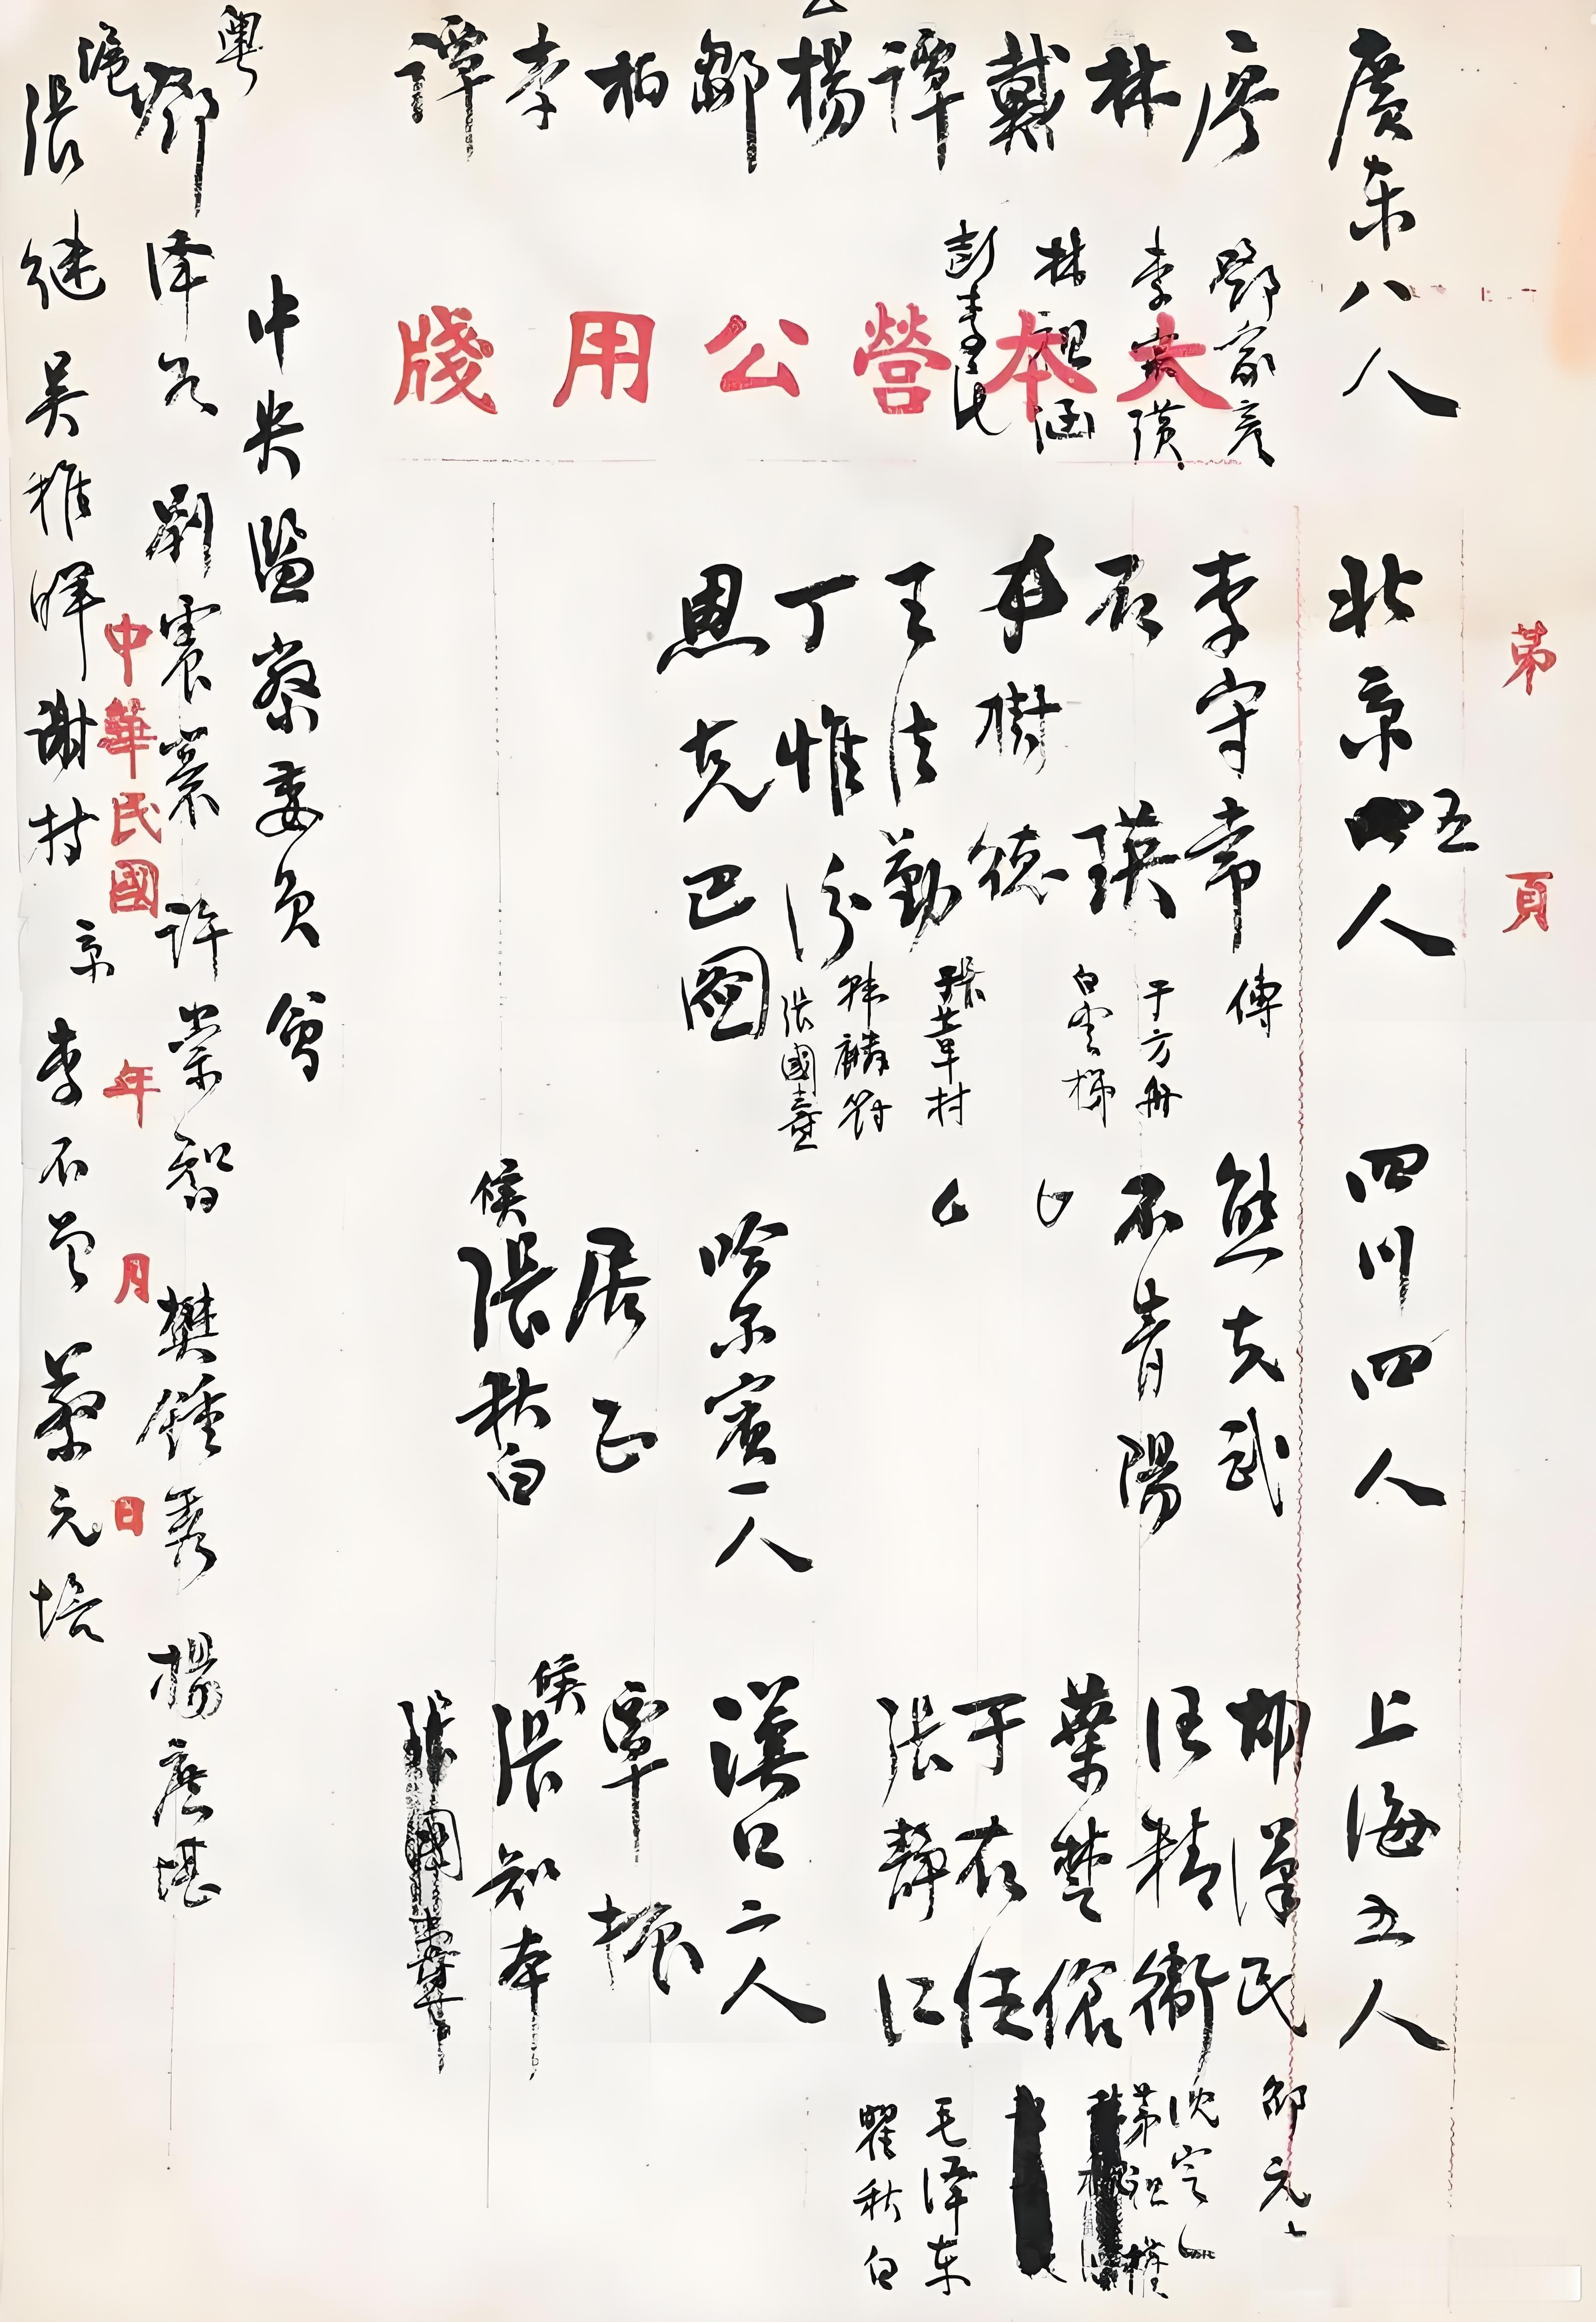 大本營公用牋
第 頁
廣东八人
廖
林
戴
譚
楊
鄒
柏
李
譚
鄧家彦
李宗璜
林祖涵
彭素民
北京四五人
李守常
石瑛
李樹德
王法勤
丁惟汾
恩克巴圖
傅
于方舟
白雲梯
張葦村
韩麟符
張國燾
四川四人
熊克武
石青陽
哈尔賓一人
居正
候
張秋白
上海五人
胡漢民
汪精衞
葉楚傖
于右任
張靜江
邵元
沈定一
茅祖權
毛泽东
瞿秋白
漢口二人
覃振
候
張知本
張國燾
中央監察委員會
粤
鄧泽如 劉震寰 許崇智 樊鍾秀 楊庶堪
滬
張继 吴稚暉 謝持 京 李石曾 蔡元培
中華民國 年 月 日